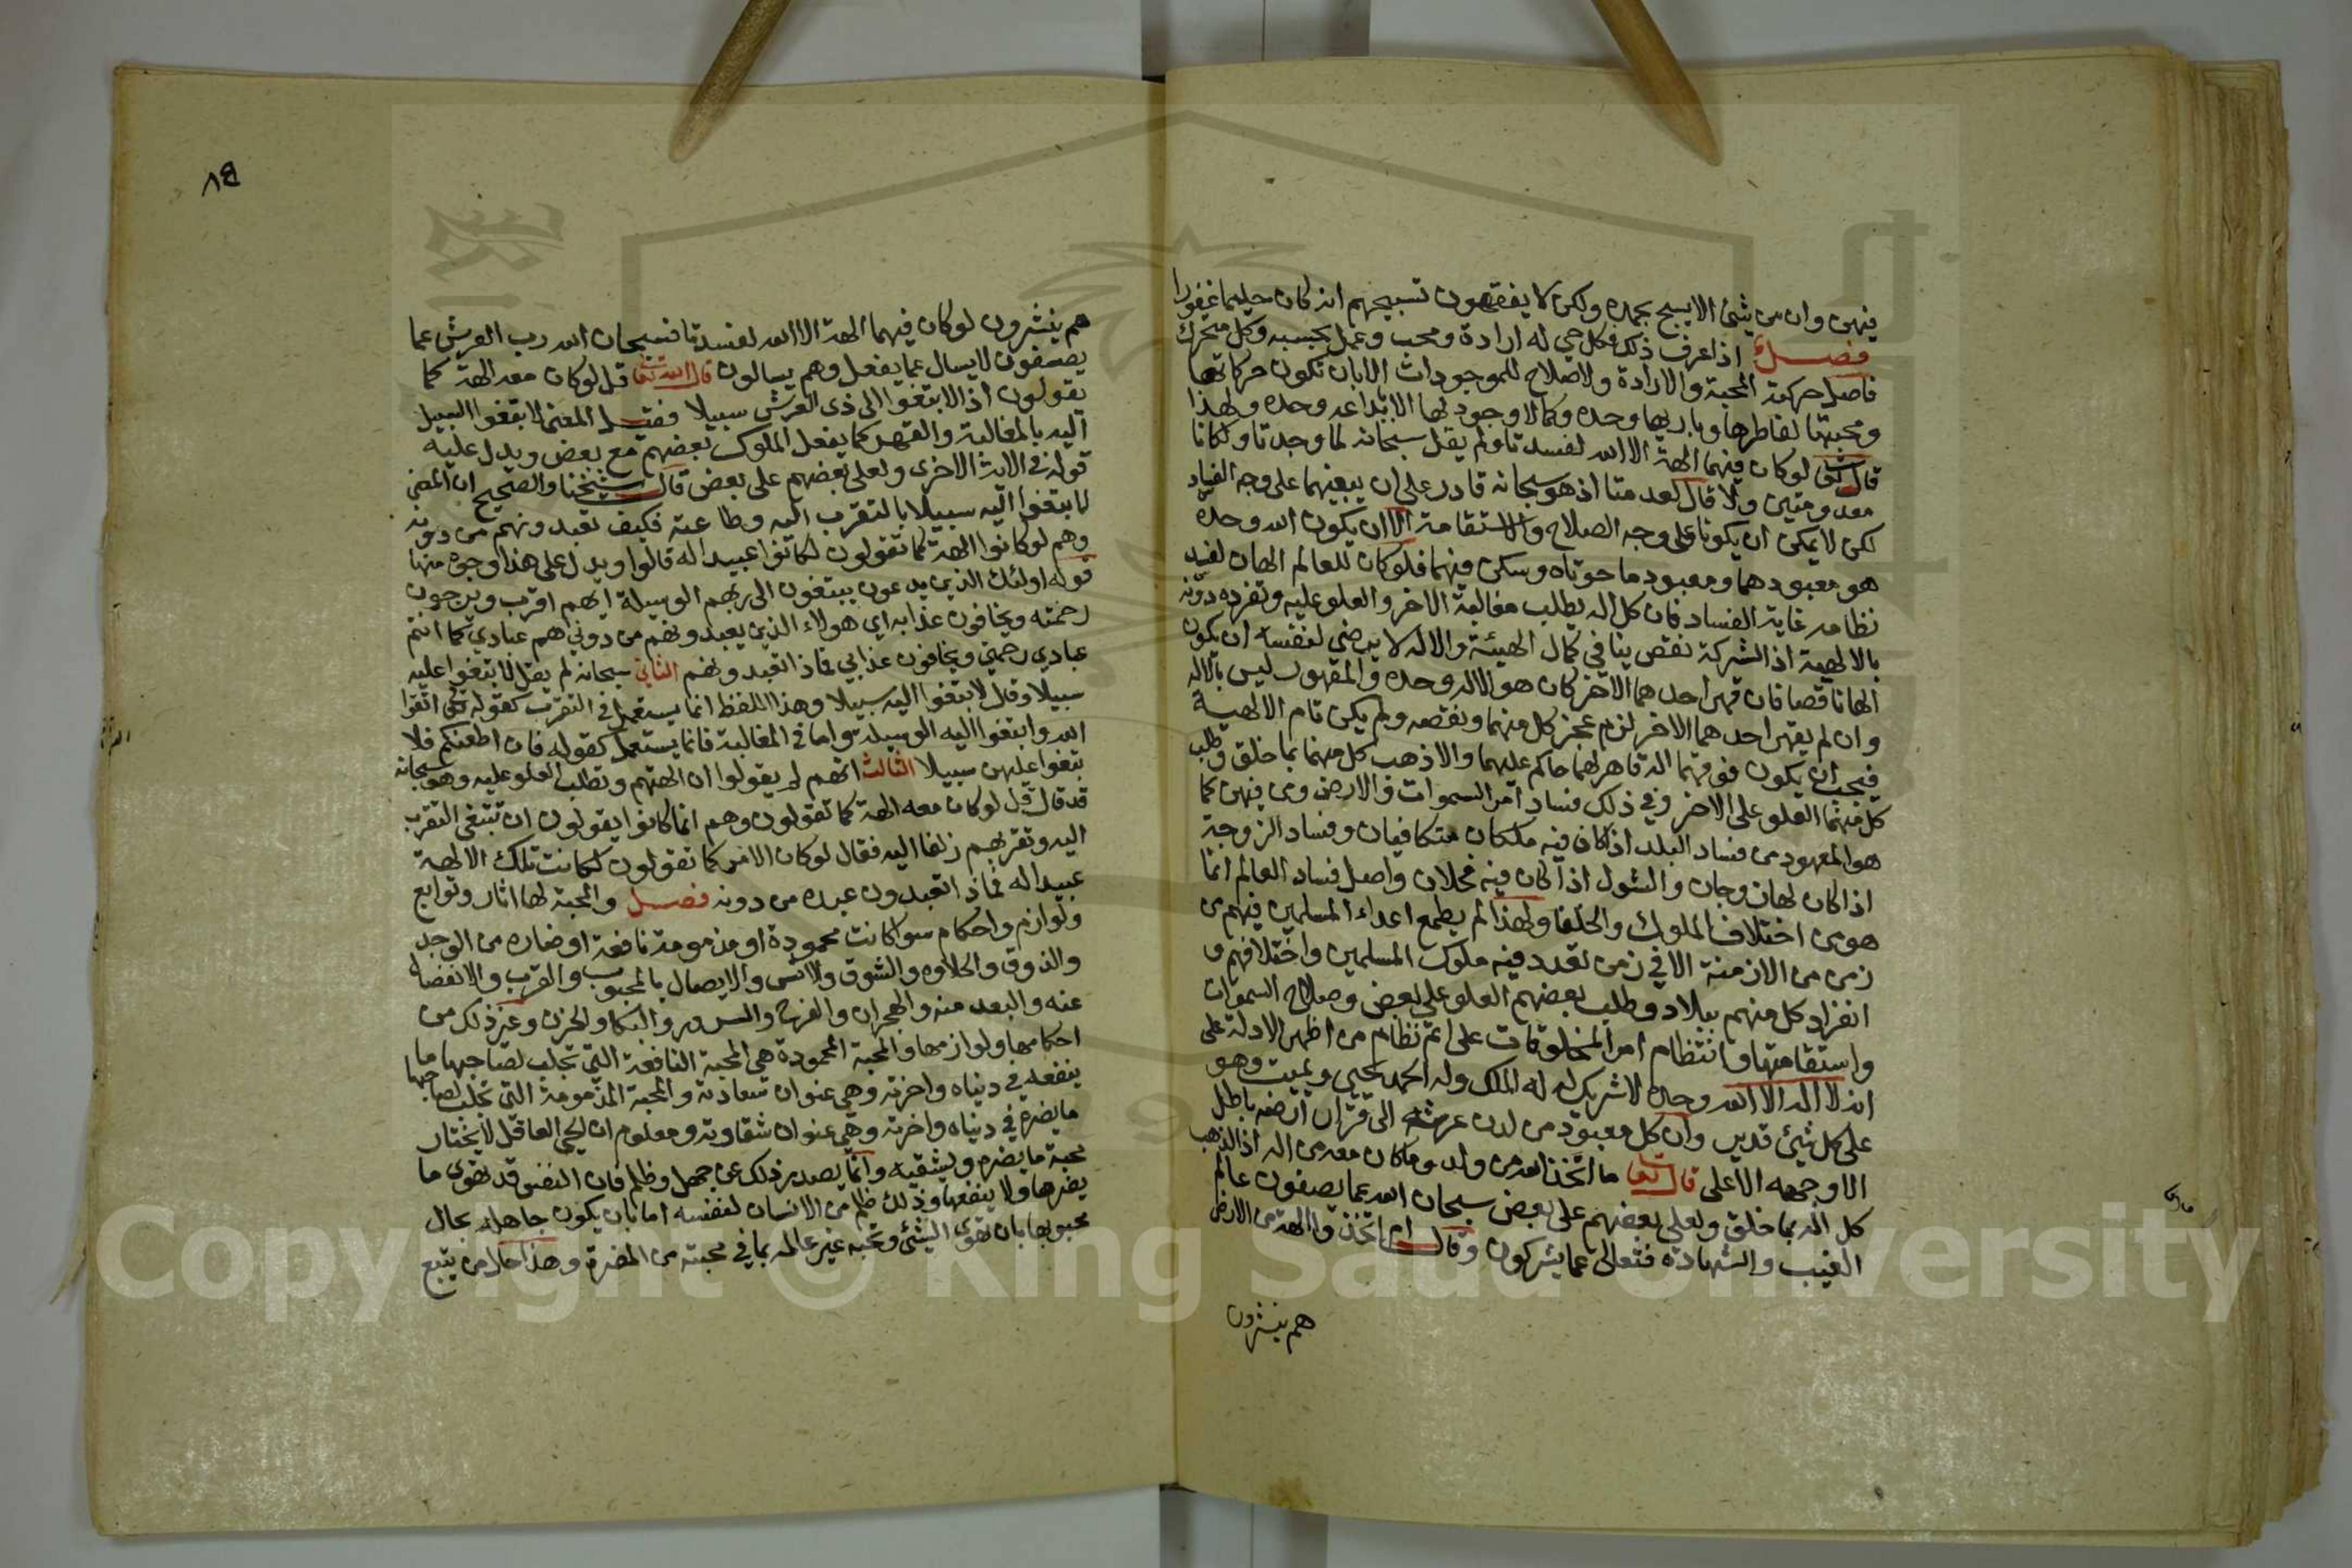 فيهن وان من شئ الا يسبح بحمده ولكن لا يفقهون تسبيحهم انه كان حليما غفورا
فصل اذا عرف ذلك فكل حي له ارادة ومحبة وعمل بحسبه وكل متحرك
فاصل حركته المحبة والارادة ولا صلاح للموجودات الا بان تكون حركاتها
ومحبتها لفاطرها وباريها وحده وكما لا وجود لها الا بابداعه وحده ولهذا
قال تعالى لو كان فيهما الهة الا الله لفسدتا ولم يقل سبحانه لما وجدتا ولكانتا
معدومتين ولا قال لعدمتا اذ هو سبحانه قادر على ان يبقيهما على وجه الفساد
لكن لا يمكن ان يكونا على وجه الصلاح والاستقامة الا ان يكون الله وحده
هو معبودهما ومعبود ما حوتاه وسكن فيهما فلو كان للعالم الهان لفسد
نظامه غاية الفساد فان كل اله يطلب مغالبة الاخر والعلو عليه وتفرده دونه
بالالهية اذ الشركة نقص ينافي كمال الهيئة والاله لا يرضى لنفسه ان يكون
الها ناقصا فان قهر احدهما الاخر كان هو الاله وحده والمقهور ليس بالاله
وان لم يقهر احدهما الاخر لزم عجز كل منهما ونقصه ولم يكن تام الالهية
فيجب ان يكون فوقهما اله قاهر لهما حاكم عليهما والا ذهب كل منهما بما خلق وطلب
كل منهما العلو على الاخر وفي ذلك فساد امر السموات والارض ومن فيهن كما
هو المعهود من فساد البلد اذا كان فيه ملكان متكافيان وفساد الزوجة
اذا كان لها زوجان والشول اذا كان فيه فحلان واصل فساد العالم انما
هو من اختلاف الملوك والخلفا ولهذا لم يطمع اعداء المسلمين فيهم في
زمن من الازمنة الا في زمن تعدد فيه ملوك المسلمين واختلافهم و
انفراد كل منهم ببلاد وطلب بعضهم العلو على بعض وصلاح السموات
واستقامتها وانتظام امر المخلوقات على اتم نظام من اظهر الادلة على
انه لا اله الا الله وحده لا شريك له له الملك وله الحمد يحيي ويميت وهو
على كل شئ قدير وان كل معبود من لدن عرشه الى قرار ارضه باطل
الا وجهه الاعلى قال تعالى ما اتخذ الله من ولد وما كان معه من اله اذا لذهب
كل اله بما خلق ولعلى بعضهم على بعض سبحان الله عما يصفون عالم
الغيب والشهادة فتعالى عما يشركون وقال ام اتخذوا الهة من الارض
هم ينشرون
٨٤
هم ينشرون لو كان فيهما الهة الا الله لفسدتا فسبحان الله رب العرش عما
يصفون لا يسال عما يفعل وهم يسالون قال الله تعالى قل لو كان معه الهة كما
يقولون اذا لابتغوا الى ذي العرش سبيلا فقيل المعنى لابتغوا السبيل
اليه بالمغالبة والقهر كما يفعل الملوك بعضهم مع بعض ويدل عليه
قوله في الاية الاخرى ولعلى بعضهم على بعض قال شيخنا والصحيح ان المعنى
لابتغوا اليه سبيلا بالتقرب اليه وطاعته فكيف تعبدونهم من دونه
وهم لو كانوا الهة كما تقولون لكانوا عبيدا له قالوا ويدل على هذا وجوه منها
قوله اولئك الذين يدعون يبتغون الى ربهم الوسيلة ايهم اقرب ويرجون
رحمته ويخافون عذابه اي هولاء الذين يعبدونهم من دوني هم عبادي كما انتم
عبادي رحمتي ويخافون عذابي فلماذا تعبدونهم الثاني سبحانه لم يقل لابتغوا عليه
سبيلا وقال لابتغوا اليه سبيلا وهذا اللفظ انما يستعمل في التقرب كقوله تعالى اتقوا
الله وابتغوا اليه الوسيلة واما في المغالبة فانما يستعمل كقوله فان اطعنكم فلا
تبغوا عليهن سبيلا الثالث انهم لم يقولوا ان الهتهم وتطلب العلو عليه وهو سبحانه
قد قال قل لو كان معه الهة كما تقولون وهم انما كانوا يقولون ان تبتغى التقرب
اليه وتقربهم زلفا اليه فقال لو كان الامر كما تقولون لكانت تلك الالهة
عبيدا له فلماذا تعبدون عبده من دونه فصل والمحبة لها اثار وتوابع
ولوازم واحكام سوا كانت محمودة او مذمومة نافعة او ضاره من الوجد
والذوق والحلاوه والشوق والانس والايصال بالمحبوب والقرب والانفصال
عنه والبعد منه والهجران والفرح والسرور والبكا والحزن وغير ذلك من
احكامها ولوازمها والمحبة المحمودة هي المحبة النافعة التي تجلب لصاحبها ما
ينفعه في دنياه واخرته وهي عنوان سعادته والمحبة المذمومة التي تجلب لصاحبها
ما يضره في دنياه واخرته وهي عنوان شقاوته ومعلوم ان الحي العاقل لا يختار
محبة ما يضره ويشقيه وانما يصدر ذلك عن جهل وظلم فان النفس قد تهوى ما
يضرها ولا ينفعها وذلك ظلم من الانسان لنفسه اما بان يكون جاهله بحال
محبوبها بان تهوى الشئ وتحبه غير عالمه بما في محبته من المضرة وهذا حال من يتبع
Copyright © King Saud University